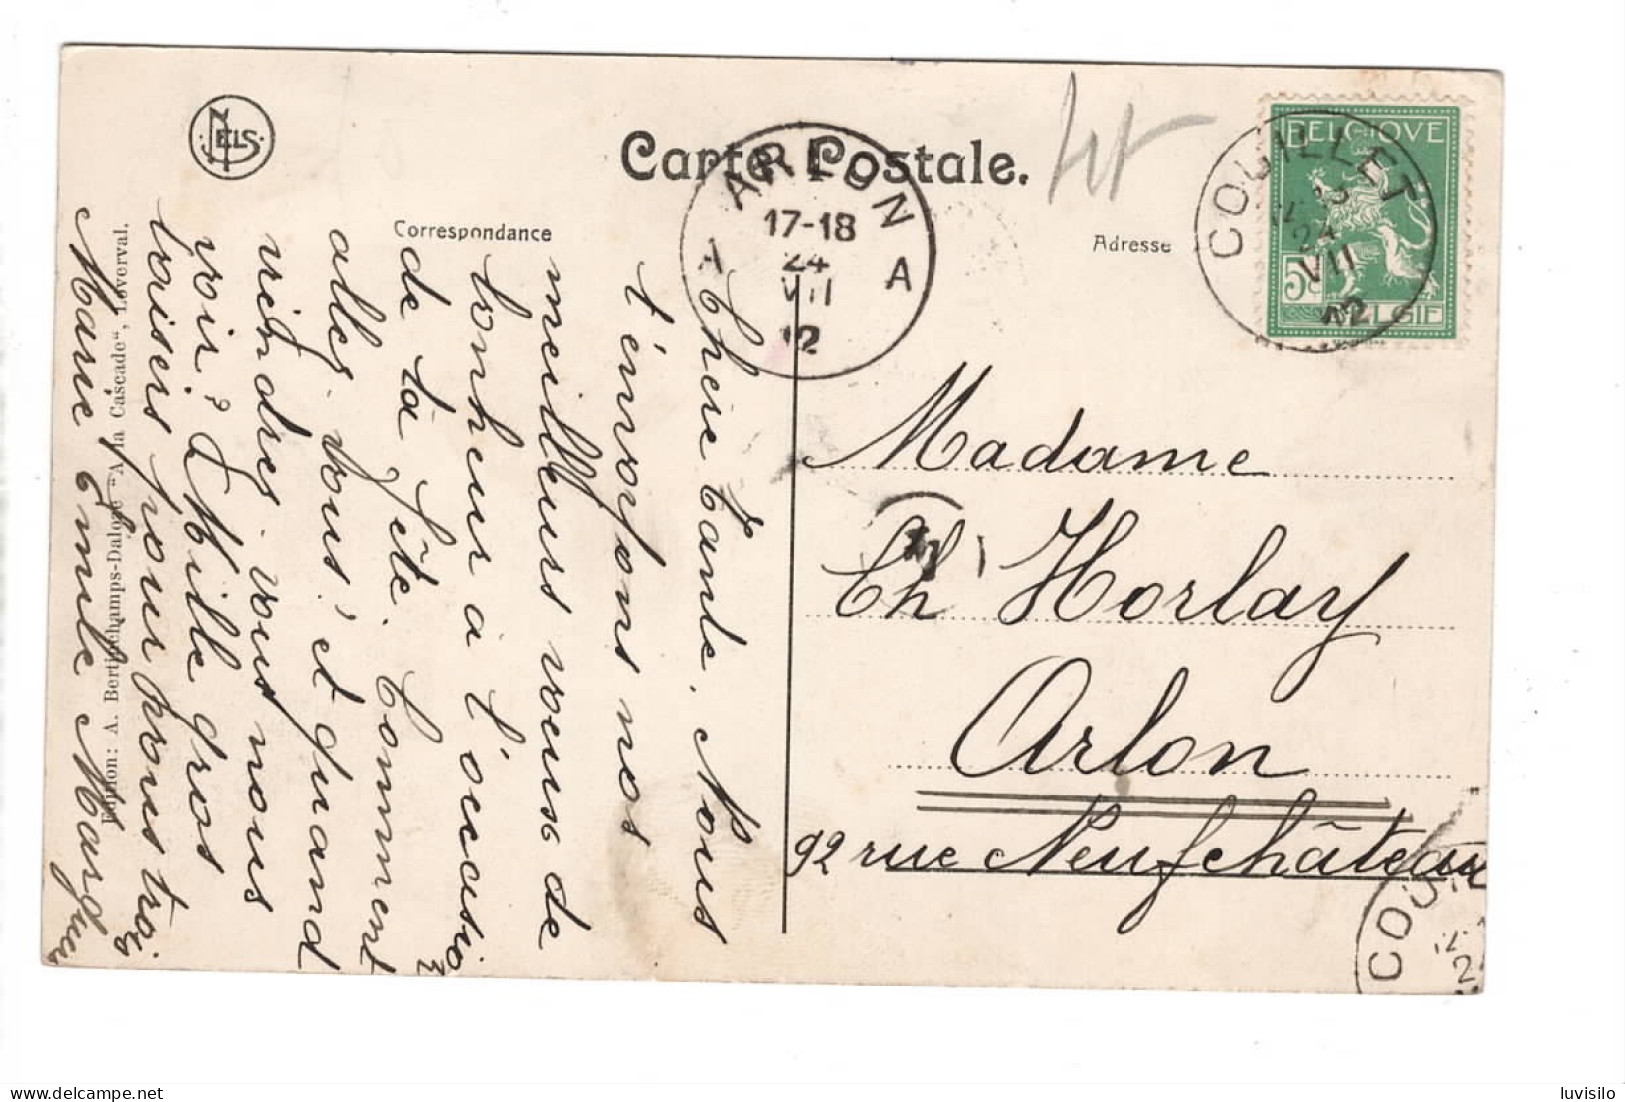 NELS
Carte Postale.
Correspondance
Adresse
ARLON
17-18
24
VII
12
A A
COUILLET
24
VII
12
BELGIQUE
5c
BELGIE
Chère tante, Nous
t'envoyons nos
meilleurs voeux de
bonheur à l'occasion
de ta fête. Comment
allez-vous? et quand
viendrez-vous nous
voir? Mille gros
baisers pour vous trois
Marie Emile Marguerite
Edition: A. Bertinchamps-Daloze "A la Cascade", Loverval.
Madame
Ch Horlay
Arlon
92 rue Neufchâteau
COU
luvisilo